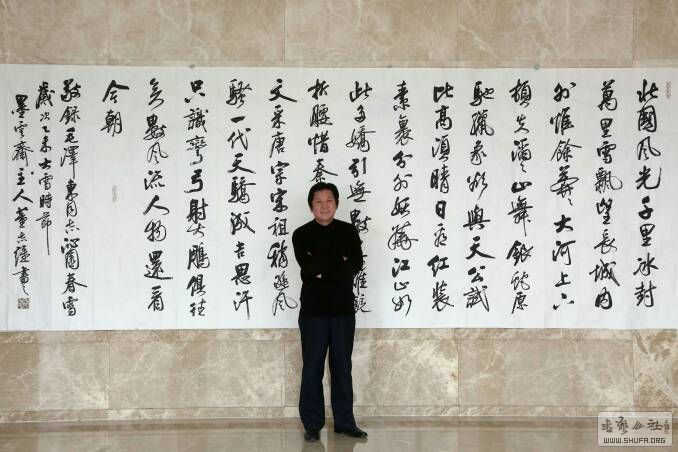 北國風光千里冰封
萬里雪飄望長城內
外惟餘莽〻大河上下
頓失滔〻山舞銀蛇原
馳蠟象欲與天公試
比高須晴日看紅裝
素裹分外妖嬈江山如
此多嬌引無數雄競
折腰惜秦
文采唐宗宋祖稍遜風
騷一代天驕成吉思汗
只識彎弓射大鵰俱往
矣數風流人物還看
今朝
敬錄毛澤東同志沁園春雪
歲次乙未大雪時節
墨雲齋主人董書
書藝公社
WWW.SHUFA.ORG